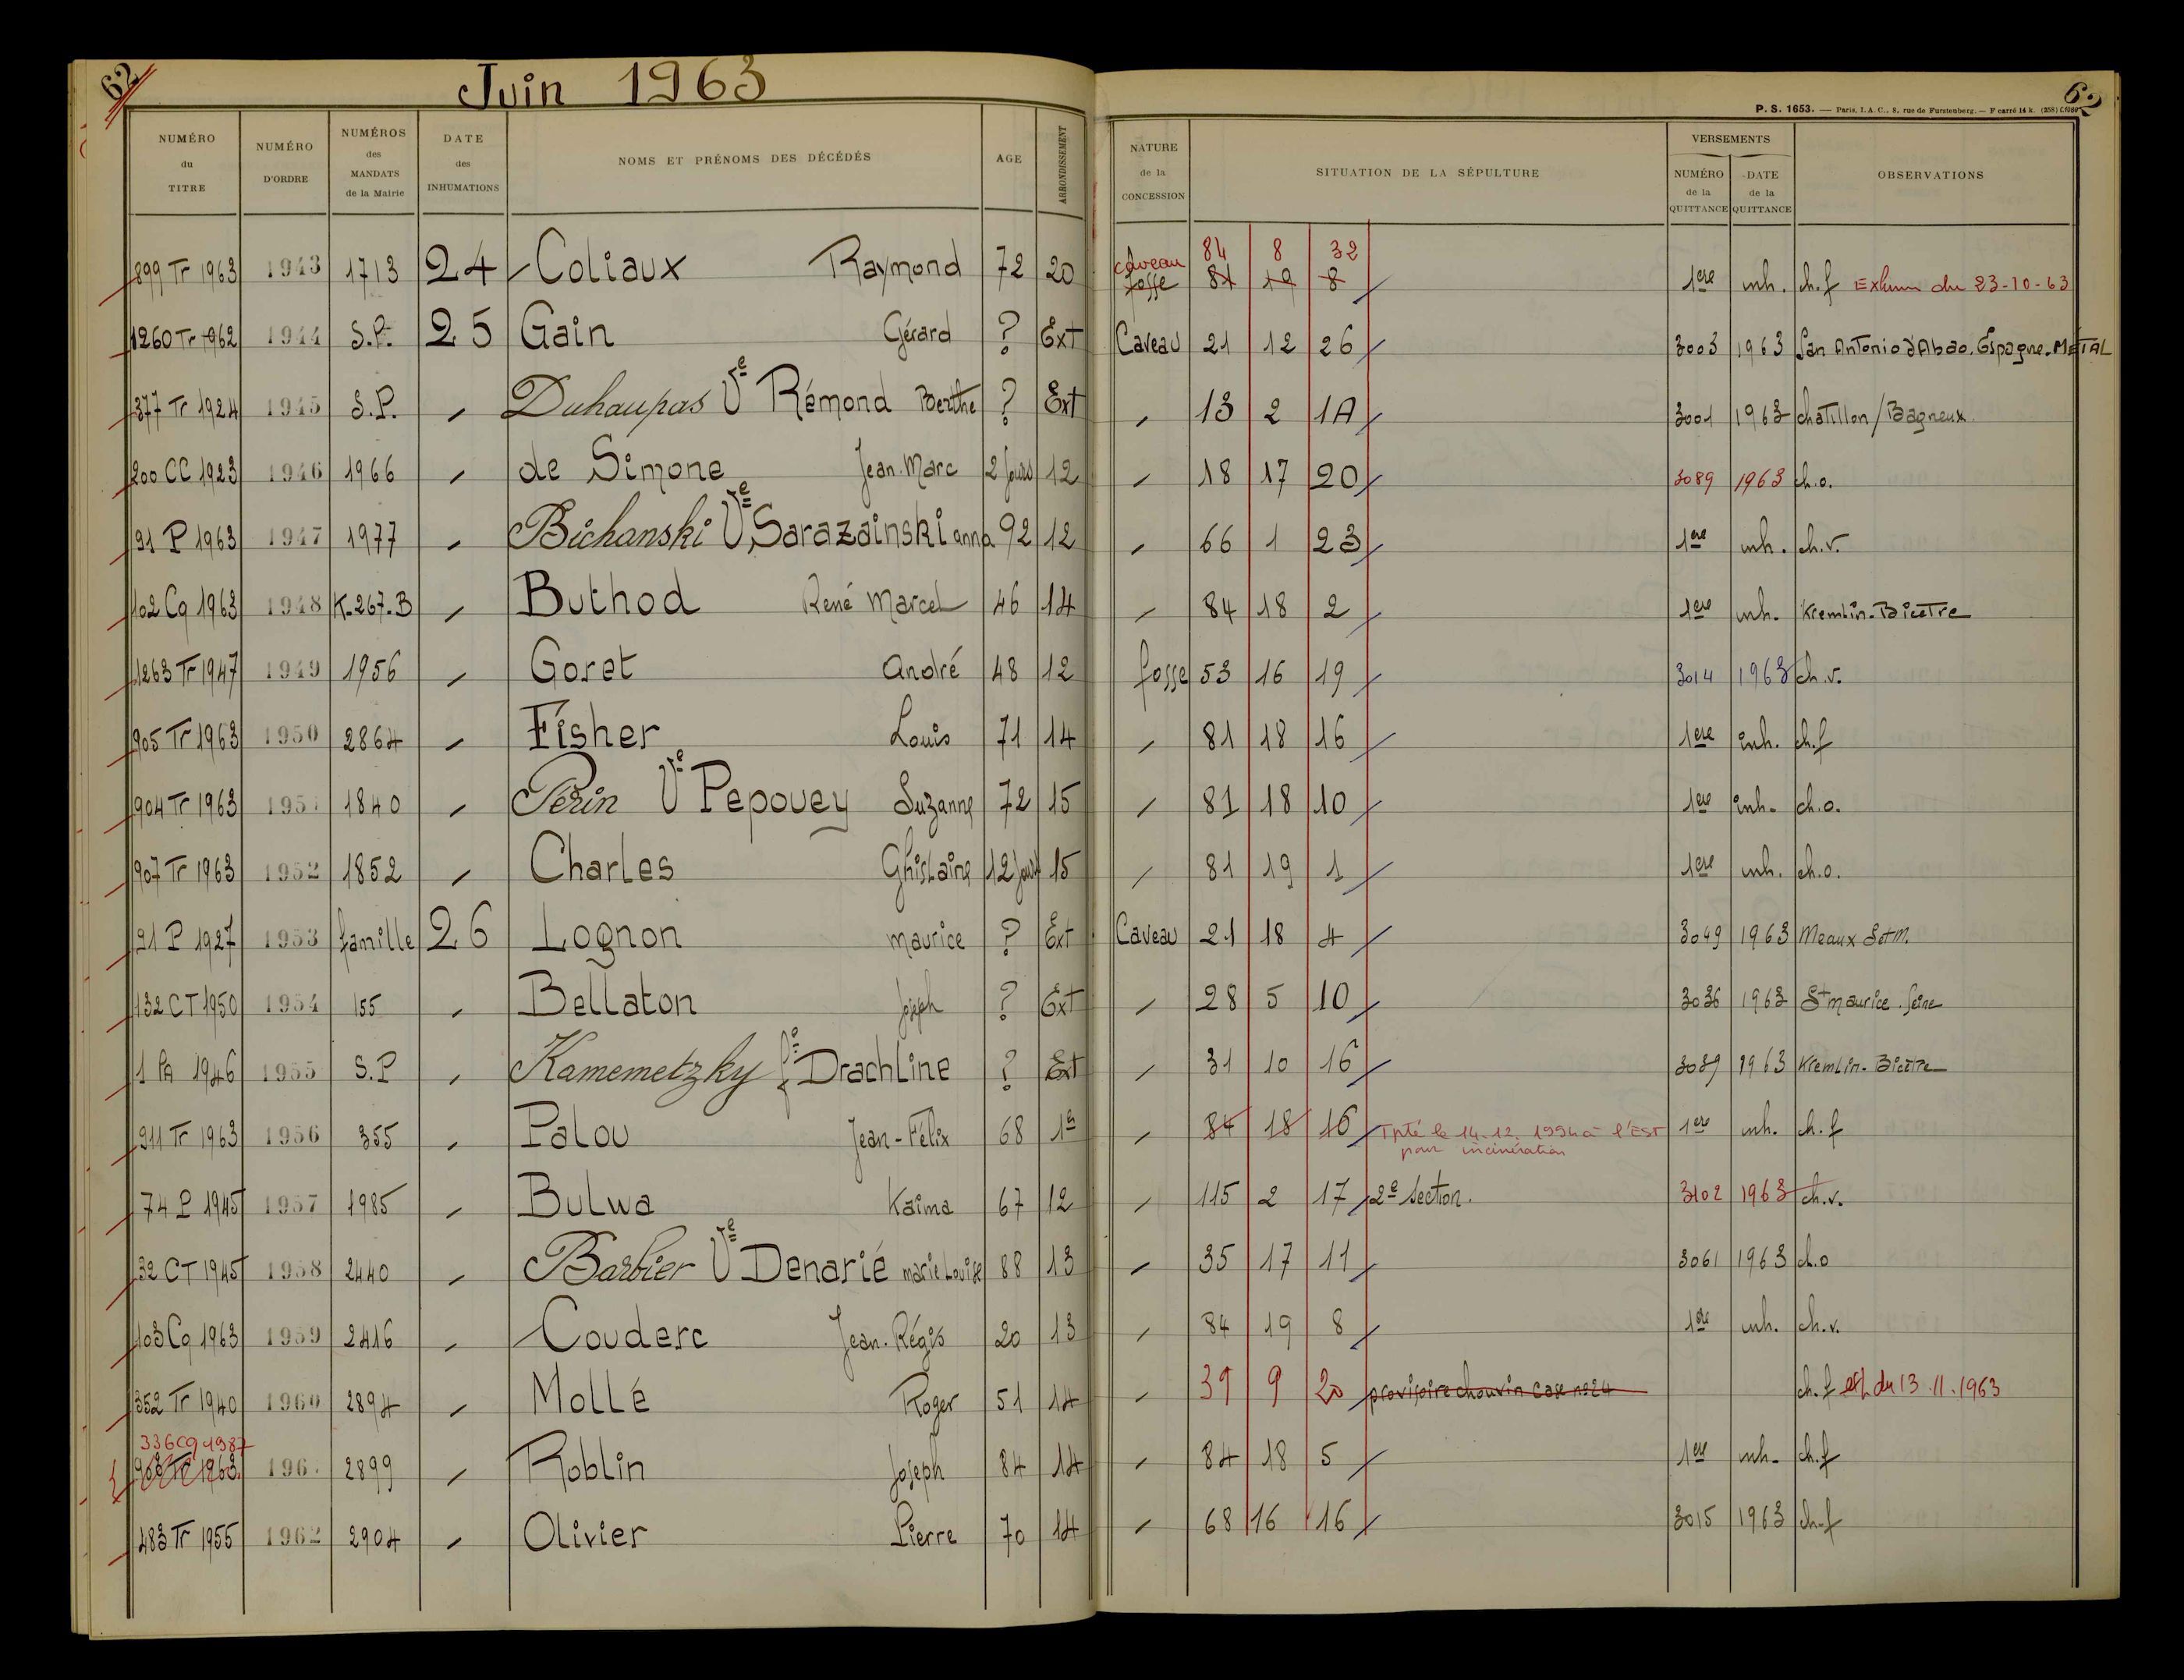 62
Juin 1963
62
P. S. 1653. — Paris, I. A. C., 8, rue de Furstenberg. — F carré 14 k. (258)
NUMÉRO du TITRE NUMÉRO D'ORDRE NUMÉROS des MANDATS de la Mairie DATE des INHUMATIONS NOMS ET PRÉNOMS DES DÉCÉDÉS AGE ARRONDISSEMENT NATURE de la CONCESSION SITUATION DE LA SÉPULTURE VERSEMENTS NUMÉRO de la QUITTANCE DATE de la QUITTANCE OBSERVATIONS
caveau 84 8 32
899 Tr 1963 1943 1713 24 Coliaux Raymond 72 20 fosse 81 19 8 1ere inh. ch.f Exhum du 23-10-63
1260 Tr 1962 1944 S.P. 25 Gain Gérard ? Ext Caveau 21 12 26 3003 1963 San Antonio d'Abao. Espagne. METAL
377 Tr 1924 1945 S.P. " Duhaupas Ve Rémond Berthe ? Ext " 13 2 1A 3001 1963 chatillon/Bagneux
200 CC 1923 1946 1966 " de Simone Jean.Marc 2 jours 12 " 18 17 20 3089 1963 ch.o.
91 P 1963 1947 1977 " Bichanski Ve Sarazainski anna 92 12 " 66 1 23 1ere inh. ch.v.
102 Cq 1963 1948 K.267.B " Buthod René Marcel 46 14 " 84 18 2 1ere inh. Kremlin-Bicetre
1263 Tr 1947 1949 1956 " Goret André 48 12 fosse 53 16 19 3014 1963 ch.v.
905 Tr 1963 1950 2864 " Fisher Louis 71 14 " 81 18 16 1ere inh. ch.f
904 Tr 1963 1951 1840 " Perin Ve Pepouey Suzanne 72 15 " 81 18 10 1ere inh. ch.o.
907 Tr 1963 1952 1852 " Charles Ghislaine 12 jours 15 " 81 19 1 1ere inh. ch.o.
21 P 1927 1953 famille 26 Lognon maurice ? Ext Caveau 21 18 4 3049 1963 Meaux S.et M.
132 CT 1950 1954 155 " Bellaton Joseph ? Ext " 28 5 10 3036 1963 St maurice. Seine
1 PA 1946 1955 S.P " Kamemetzky fe Drachline ? Ext " 31 10 16 3089 1963 Kremlin-Bicetre
911 Tr 1963 1956 355 " Palou Jean-Félix 68 1er " 84 18 16 Tpté le 14-12-1994 à l'EST pour incinération 1ere inh. ch.f
74 P 1945 1957 1985 " Bulwa Kaima 67 12 " 115 2 17 2e Section. 3102 1963 ch.v.
32 CT 1945 1958 2440 " Barbier Ve Denarié marie Louise 88 13 " 35 17 11 3061 1963 ch.o
103 Cq 1963 1959 2416 " Couderc Jean.Régis 20 13 " 84 19 8 1ere inh. ch.v.
352 Tr 1940 1960 2894 " Mollé Roger 51 14 " 39 9 20 provisoire chouvin case n°24 ch.f exh du 13.11.1963
336 Cq 1987
908 Tr 1963 196 2899 " Roblin Joseph 84 14 " 84 18 5 1ere inh. ch.f
483 Tr 1955 1962 2904 " Olivier Pierre 70 14 " 68 16 16 3015 1963 ch.f